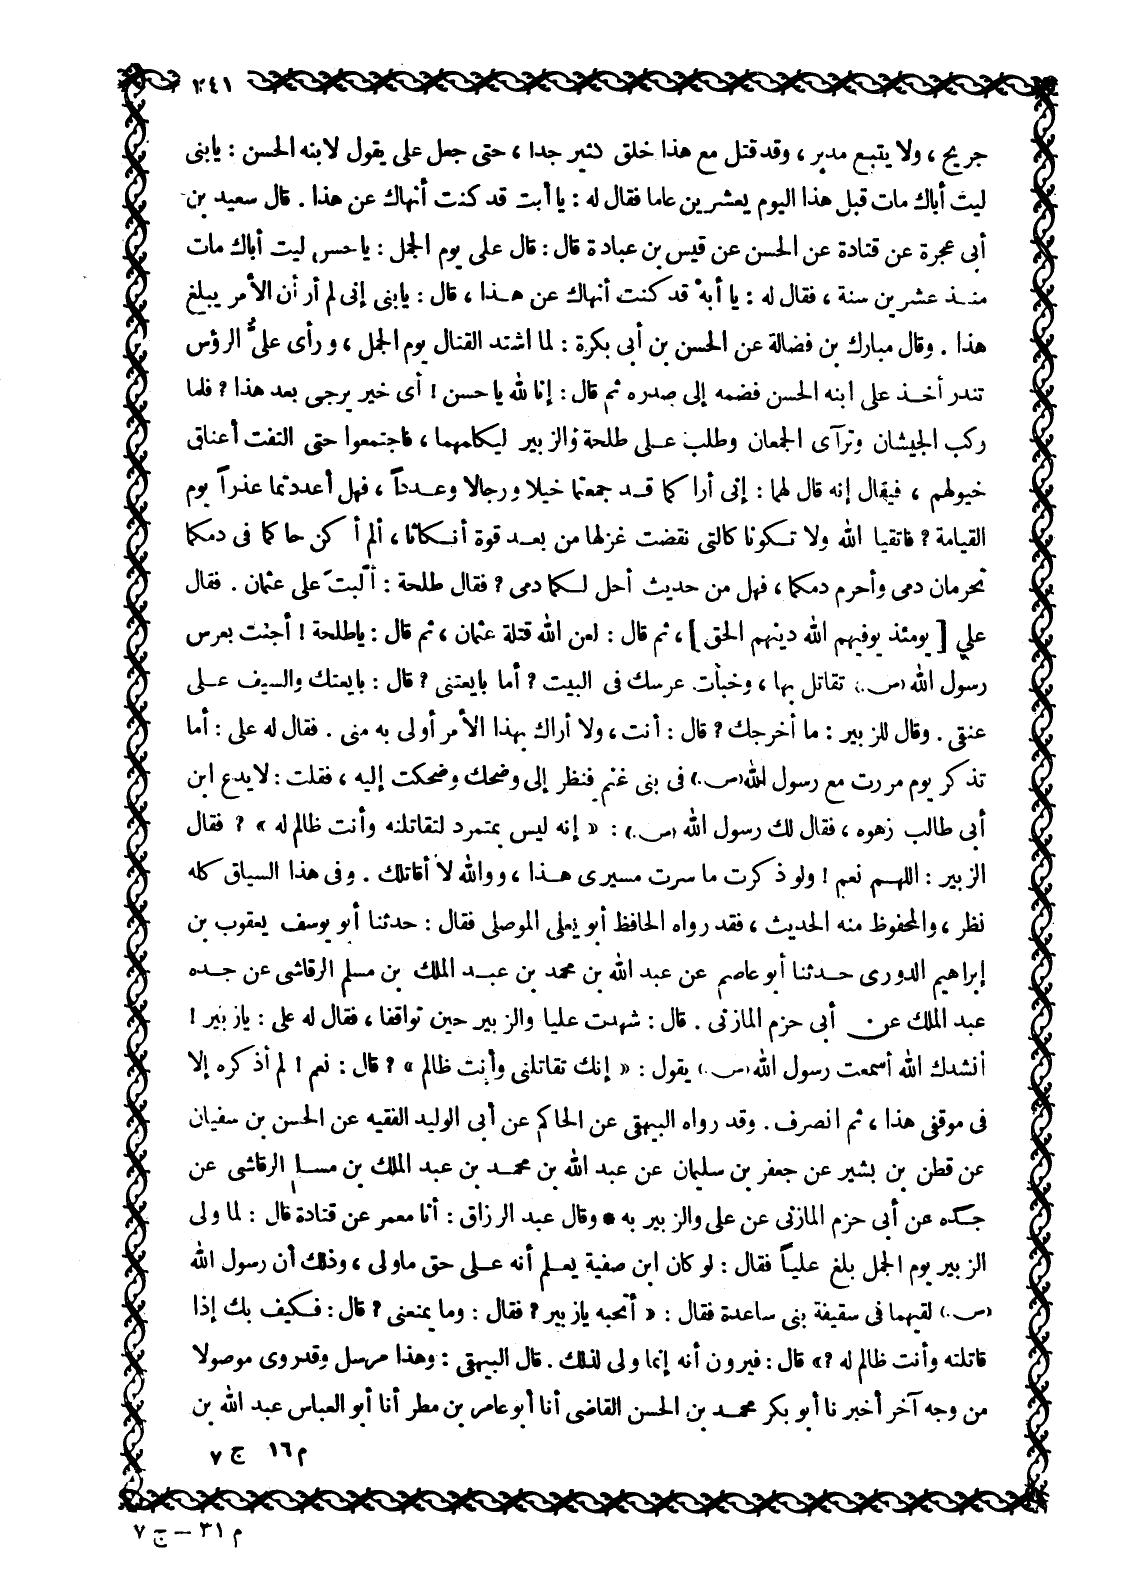 ٢٤١
جريح ، ولا يتبع مدبر ، وقد قتل مع هذا خلق كثير جدا ، حتى جعل على يقول لابنه الحسن : يابنى
ليت أباك مات قبل هذا اليوم بعشرين عاما فقال له : يا أبت قد كنت أنهاك عن هذا . قال سعيد بن
أبى عجرة عن قتادة عن الحسن عن قيس بن عبادة قال : قال على يوم الجمل : ياحسن ليت أباك مات
منذ عشرين سنة ، فقال له : يا أبه قد كنت أنهاك عن هذا ، قال : يابنى إنى لم أر أن الأمر يبلغ
هذا . وقال مبارك بن فضالة عن الحسن بن أبى بكرة : لما اشتد القتال يوم الجمل ، ورأى علىٌّ الرؤس
تندر أخذ على ابنه الحسن فضمه إلى صدره ثم قال : إنا لله ياحسن ! أى خير يرجى بعد هذا ؟ فلما
ركب الجيشان وترآى الجمعان وطلب على طلحة والزبير ليكلمهما ، فاجتمعوا حتى التفت أعناق
خيولهم ، فيقال إنه قال لهما : إنى أراكما قد جمعتما خيلا ورجالا وعدداً ، فهل أعددتما عذراً يوم
القيامة ؟ فاتقيا الله ولا تكونا كالتى نقضت غزلها من بعد قوة أنكاثا ، ألم أكن حاكما فى دمكما
تحرمان دمى وأحرم دمكما ، فهل من حديث أحل لكما دمى ؟ فقال طلحة : ألبت على عثمان . فقال
علي [ يومئذ يوفيهم الله دينهم الحق ] ، ثم قال : لعن الله قتلة عثمان ، ثم قال : ياطلحة ! أجئت بعرس
رسول الله (ص) تقاتل بها ، وخبأت عرسك فى البيت ؟ أما بايعتنى ؟ قال : بايعتك والسيف على
عنقى . وقال للزبير : ما أخرجك ؟ قال : أنت ، ولا أراك بهذا الأمر أولى به منى . فقال له على : أما
تذكر يوم مررت مع رسول الله (ص) فى بنى غنم فنظر إلى وضحك وضحكت إليه ، فقلت : لايدع ابن
أبى طالب زهوه ، فقال لك رسول الله (ص) : « إنه ليس بمتمرد لتقاتلنه وأنت ظالم له » ؟ فقال
الزبير : اللهم نعم ! ولو ذكرت ما سرت مسيرى هذا ، ووالله لا أقاتلك . وفى هذا السياق كله
نظر ، والمحفوظ منه الحديث ، فقد رواه الحافظ أبو يعلى الموصلى فقال : حدثنا أبو يوسف يعقوب بن
إبراهيم الدورى حدثنا أبو عاصم عن عبد الله بن محمد بن عبد الملك بن مسلم الرقاشى عن جده
عبد الملك عن أبى حزم المازنى . قال : شهدت عليا والزبير حين تواقفا ، فقال له على : يازبير !
أنشدك الله أسمعت رسول الله (ص) يقول : « إنك تقاتلنى وأنت ظالم » ؟ قال : نعم ! لم أذكره إلا
فى موقفى هذا ، ثم انصرف . وقد رواه البيهقى عن الحاكم عن أبى الوليد الفقيه عن الحسن بن سفيان
عن قطن بن بشير عن جعفر بن سليمان عن عبد الله بن محمد بن عبد الملك بن مسلم الرقاشى عن
جده عن أبى حزم المازنى عن على والزبير به * وقال عبد الرزاق : أنا معمر عن قتادة قال : لما ولى
الزبير يوم الجمل بلغ علياً فقال : لو كان ابن صفية يعلم أنه على حق ماولى ، وذلك أن رسول الله
(ص) لقيهما فى سقيفة بنى ساعدة فقال : « أتحبه يازبير ؟ فقال : وما يمنعنى ؟ قال : فكيف بك إذا
قاتلته وأنت ظالم له ؟» قال : فيرون أنه إنما ولى لذلك . قال البيهقى : وهذا مرسل وقد روى موصولا
من وجه آخر أخبرنا أبو بكر محمد بن الحسن القاضى أنا أبو عامر بن مطر أنا أبو العباس عبد الله بن
م ١٦ ج ٧
م ٣١ – ج ٧